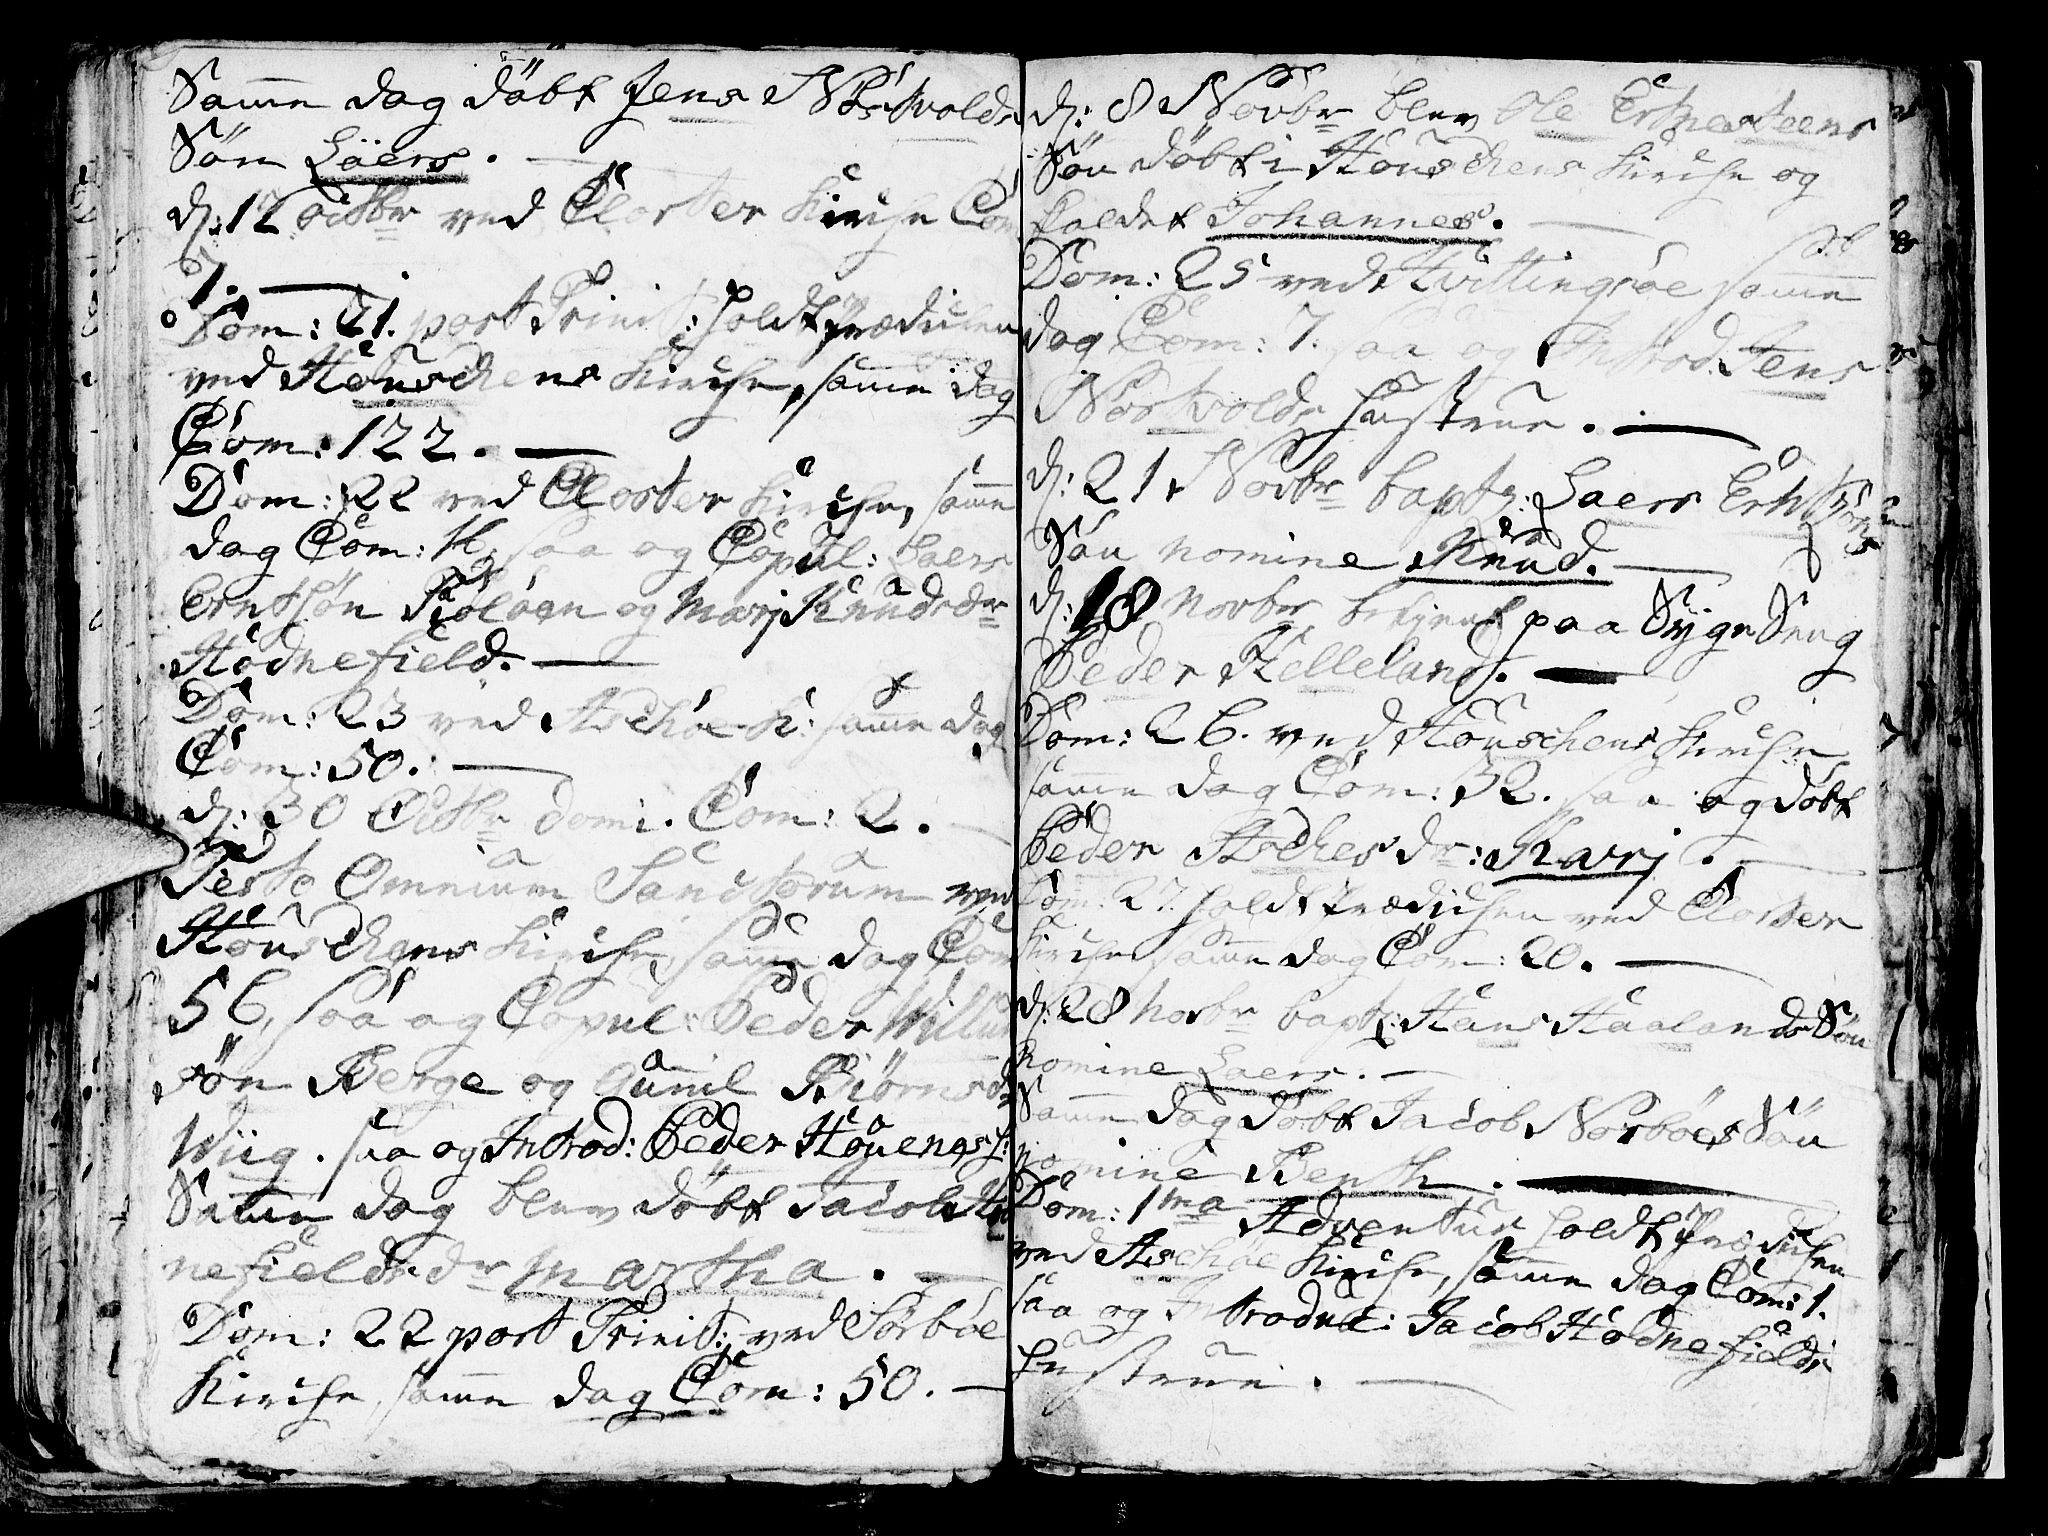 Samme dag döbt Jens Nordvolds
Sön Läers.
d: 12 octbr ved Closter Kirche Com
7.
Dom: 21. post Trinit: holdt Prædichen
ved Houschens Kirche, samme dag
Com: 122.
Dom: 22 ved Closter Kirche, samme
dag Com: 16, saa og Copul: Laers
Erntsön og Marj Knudsdr
Hodnefield.
Dom: 23 ved Aschöe K: samme dag
Com: 50.
d: 30 Octbr domi. Com: 2.
Festo Omnium Sanctorum ved
Houschens Kirche, samme dag Com
56, saa og Copul: Peder Willum
sön Berge og Gunnil Biörnsdr
Wiig. saa og Introd: Peder Houenes h:
Samme dag blev döbt Jacob Hod
nefields dr Martha.
Dom: 22 post Trinit: ved Sörböe
Kirche, samme dag Com: 50.
d: 8 Novbr blev Ole Erchesteens
Sön döbt i Houschens Kirche og
kaldet Johannes.
Dom: 25 ved Hvittingsöe samme
dag Com: 7. saa og Introd. Jens
Nordvolds hustrue.
d: 21 Novbr bapt: Laers
Sön nomine Knud.
d: 18 Novbr betjent paa Syge Seng
Peder Helleland.
Dom: 26. ved Houschens Kirche
samme dag Com: 32. saa og döbt
Peder Asches dr: Karj.
Dom: 27. holdt Prædichen ved Closter
Kirche samme dag Com: 20.
d: 28 Novbr bapt: Hans Haalands Sön
nomine Laers.
Samme dag döbt Jacob Norböes Sön
nomine Benth.
Dom: 1ma Adventus holdt Prædichen
ved Aschöe Kirche, samme dag Com: 1.
saa og Introduc: Jacob Hodnefields
hustrue.